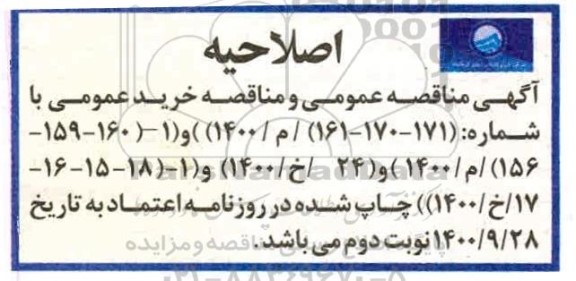 اصلاحیه
آگهی مناقصه عمومی و مناقصه خرید عمومی با
شماره: (۱۷۱-۱۷۰-۱۶۱) /م /۱۴۰۰) )و((۱-۱۶۰-۱۵۹-
۱۵۶) /م /۱۴۰۰ )و( ۲۴ /خ /۱۴۰۰) و((۱-۱۸-۱۵-۱۶-
۱۷/خ/۱۴۰۰)) چاپ شده در روزنامه اعتماد به تاریخ
۱۴۰۰/۹/۲۸ نوبت دوم می باشد.
پایگاه مناقصه و مزایده
۰۲۱-۸۸۳۴۹۶۷۰-۵